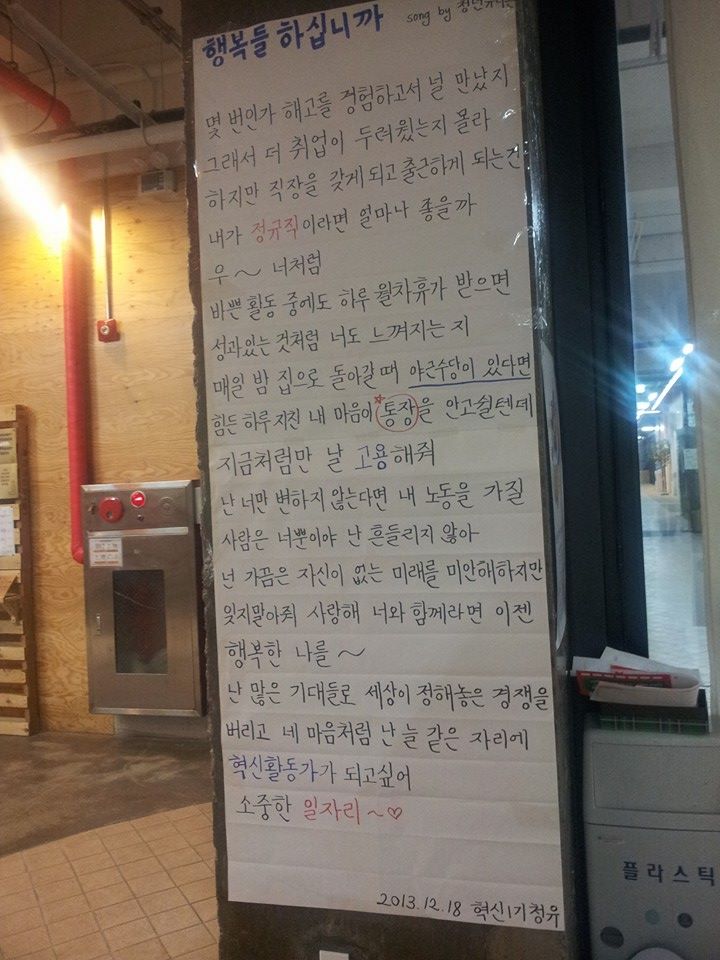 행복들 하십니까
song by 청년유니온
몇 번인가 해고를 경험하고서 널 만났지
그래서 더 취업이 두려웠는지 몰라
하지만 직장을 갖게 되고 출근하게 되는건
내가 정규직이라면 얼마나 좋을까
우~ 너처럼
바쁜 활동 중에도 하루 월차휴가 받으면
성과있는 것처럼 너도 느껴지는 지
매일 밤 집으로 돌아갈 때 야근수당이 있다면
힘든 하루 지친 내 마음이 통장을 안고쉴텐데
지금처럼만 날 고용해줘
난 너만 변하지 않는다면 내 노동을 가질
사람은 너뿐이야 난 흔들리지 않아
넌 가끔은 자신이 없는 미래를 미안해하지만
잊지말아줘 사랑해 너와 함께라면 이젠
행복한 나를~
난 많은 기대들로 세상이 정해놓은 경쟁을
버리고 네 마음처럼 난 늘 같은 자리에
혁신활동가가 되고싶어
소중한 일자리~♡
2013.12.18 혁신1기청유
플라스틱